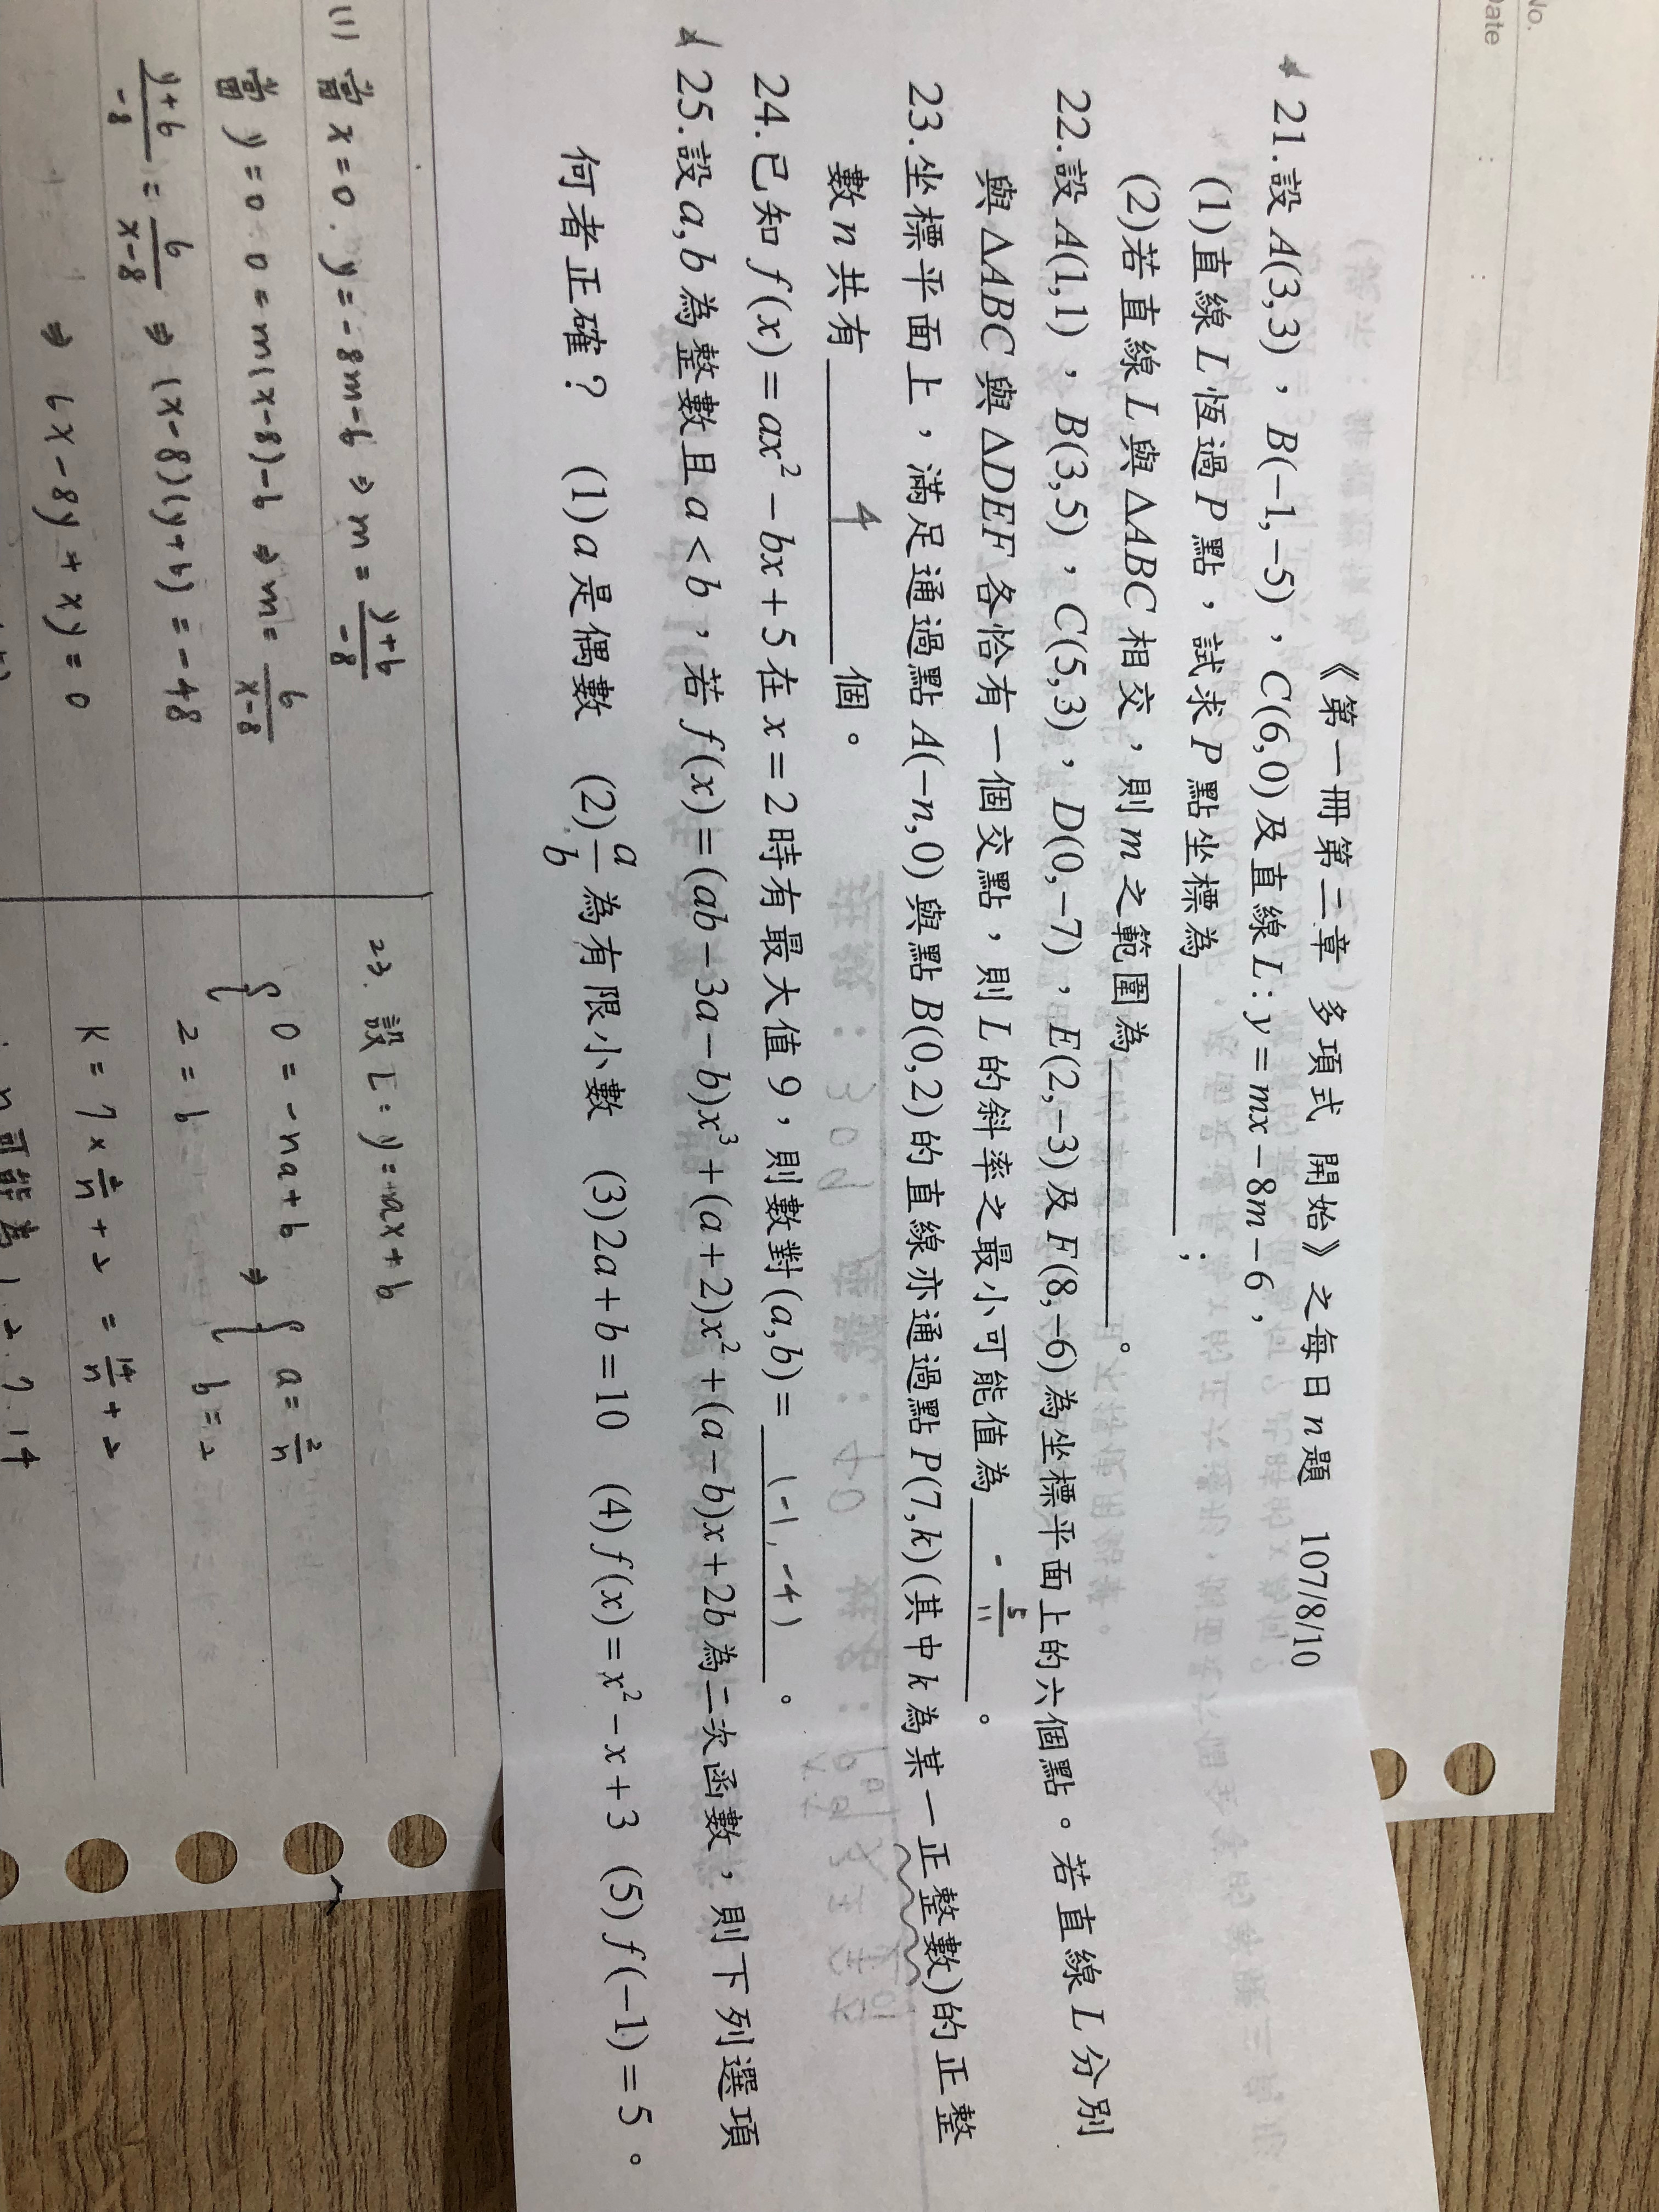 No.
Date
《第一冊第二章 多項式 開始》之每日n題 107/8/10
21.設A(3,3),B(-1,-5),C(6,0)及直線L:y=mx-8m-6,
(1)直線L恆過P點,試求P點坐標為________;
(2)若直線L與△ABC相交,則m之範圍為________。
22.設A(1,1),B(3,5),C(5,3),D(0,-7),E(2,-3)及F(8,-6)為坐標平面上的六個點。若直線L分別
與△ABC與△DEF各恰有一個交點,則L的斜率之最小可能值為 -5/11 。
23.坐標平面上,滿足通過點A(-n,0)與點B(0,2)的直線亦通過點P(7,k)(其中k為某一正整數)的正整
數n共有 4 個。
24.已知f(x)=ax²-bx+5在x=2時有最大值9,則數對(a,b)= (-1,-4) 。
25.設a,b為整數且a<b,若f(x)=(ab-3a-b)x³+(a+2)x²+(a-b)x+2b為二次函數,則下列選項
何者正確? (1)a是偶數 (2)a/b為有限小數 (3)2a+b=10 (4)f(x)=x²-x+3 (5)f(-1)=5。
(1) 當x=0. y=-8m-6 ⇒ m=(y+6)/-8
當y=0. 0=m(x-8)-6 ⇒ m=6/(x-8)
(y+6)/-8 = 6/(x-8) ⇒ (x-8)(y+6)=-48
⇒ 6x-8y+xy=0
23. 設L:y=ax+b
{ 0=-na+b ⇒ { a=2/n
2=b b=2
k=7×2/n+2 = 14/n+2
n可能為1.2.7.14